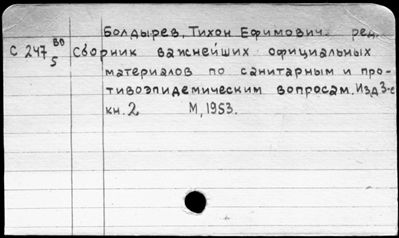 Болдырев, Тихон Ефимович. ред.
С 247 80/5 Сборник важнейших официальных
материалов по санитарным и про-
тивоэпидемическим вопросам. Изд 3-е
кн. 2 М, 1953.